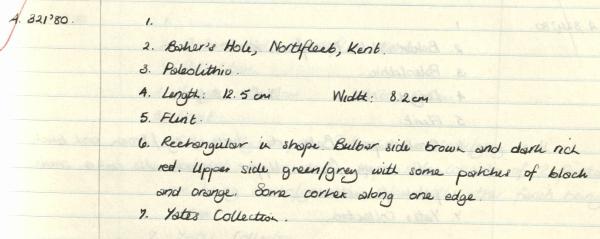 A. 321'80. 1.
2. Baker's Hole, Northfleet, Kent.
3. Paleolithic.
4. Length: 12.5 cm Width: 8.2cm
5. Flint.
6. Rectangular in shape. Bulbar side brown and dark rich
red. Upper side green/grey with some patches of black
and orange. Some cortex along one edge.
7. Yates Collection.